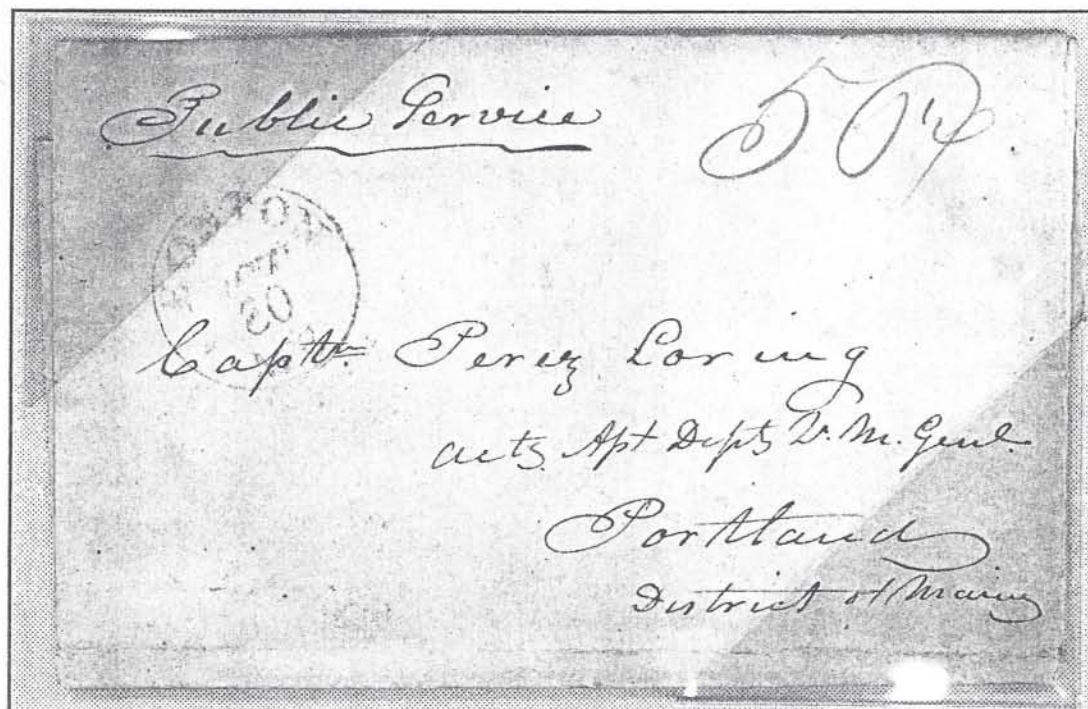 Public Service
BOSTON
OCT
Captn. Perez Loring
actg Asst Depty Q. M. Genl.
Portland
District of Maine